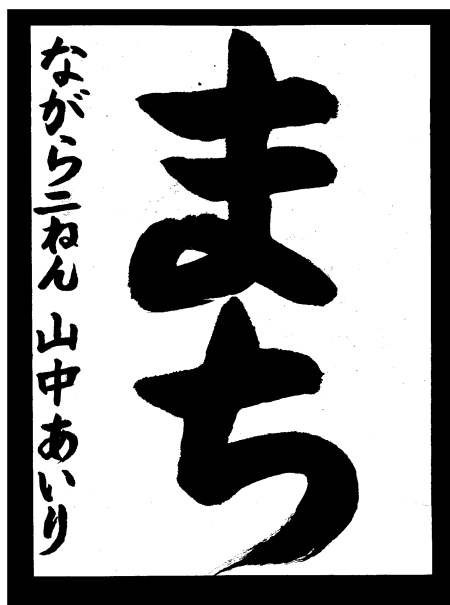 まち
ながら二ねん 山中あいり